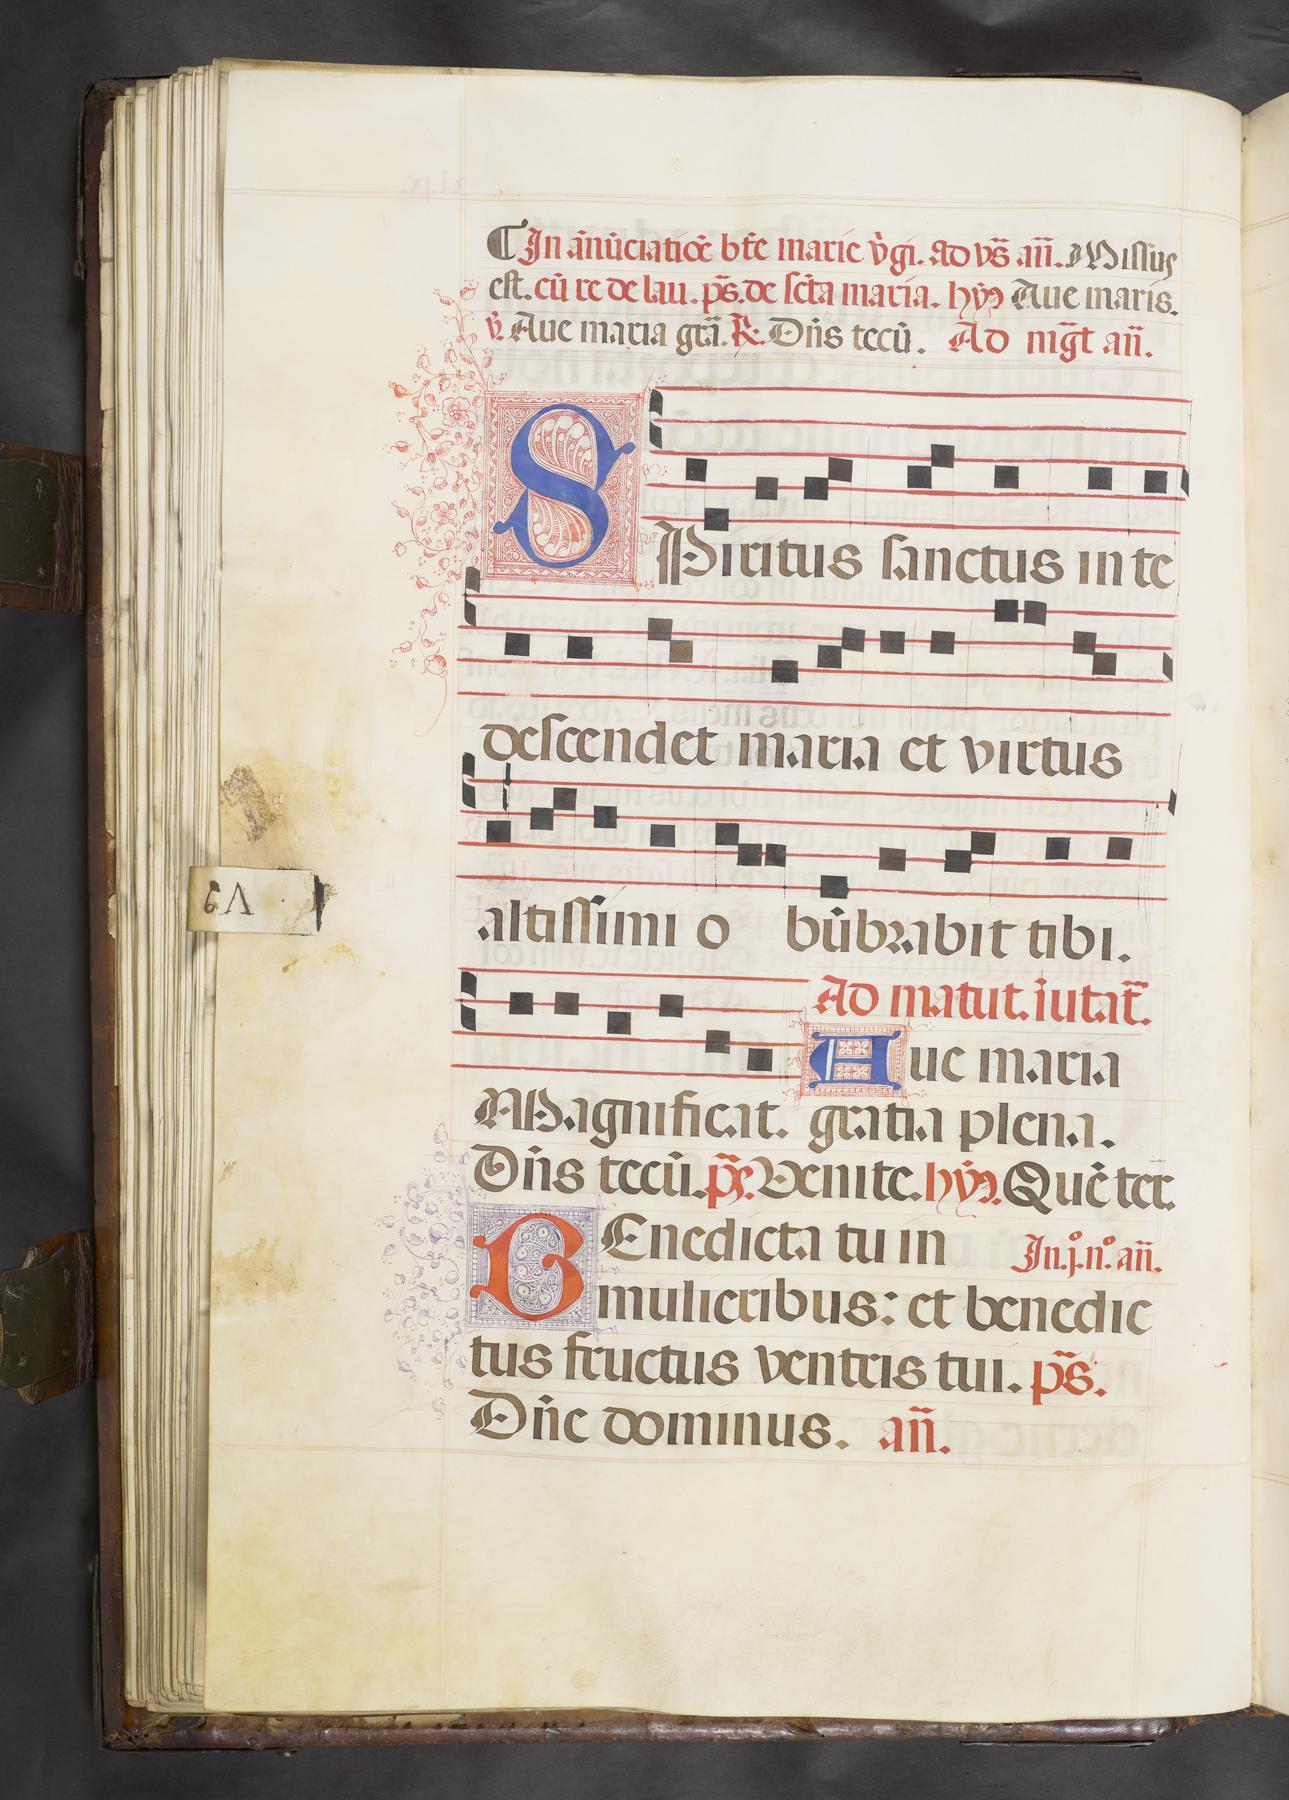 In ānūciatiōe bt̄e marie v̄gi. Ad vs̄ añ. Missus
est. cū re de lau. ps̄. de sc̄ta maria. hȳ Aue maris.
v̄. Aue maria grā. R̄. Dñs tecū. Ad mḡt añ.
SPiritus sanctus in te
descendet maria et virtus
altissimi o būbrabit tibi.
Ad matut. īutat̄.
Aue maria
Magnificat. gratia plena.
Dñs tecū. ps̄. Venite. hȳ. Quē ter.
BEnedicta tu in In.j.nº. añ.
mulieribus: et benedic
tus fructus ventris tui. ps̄.
Dñe dominus. añ.